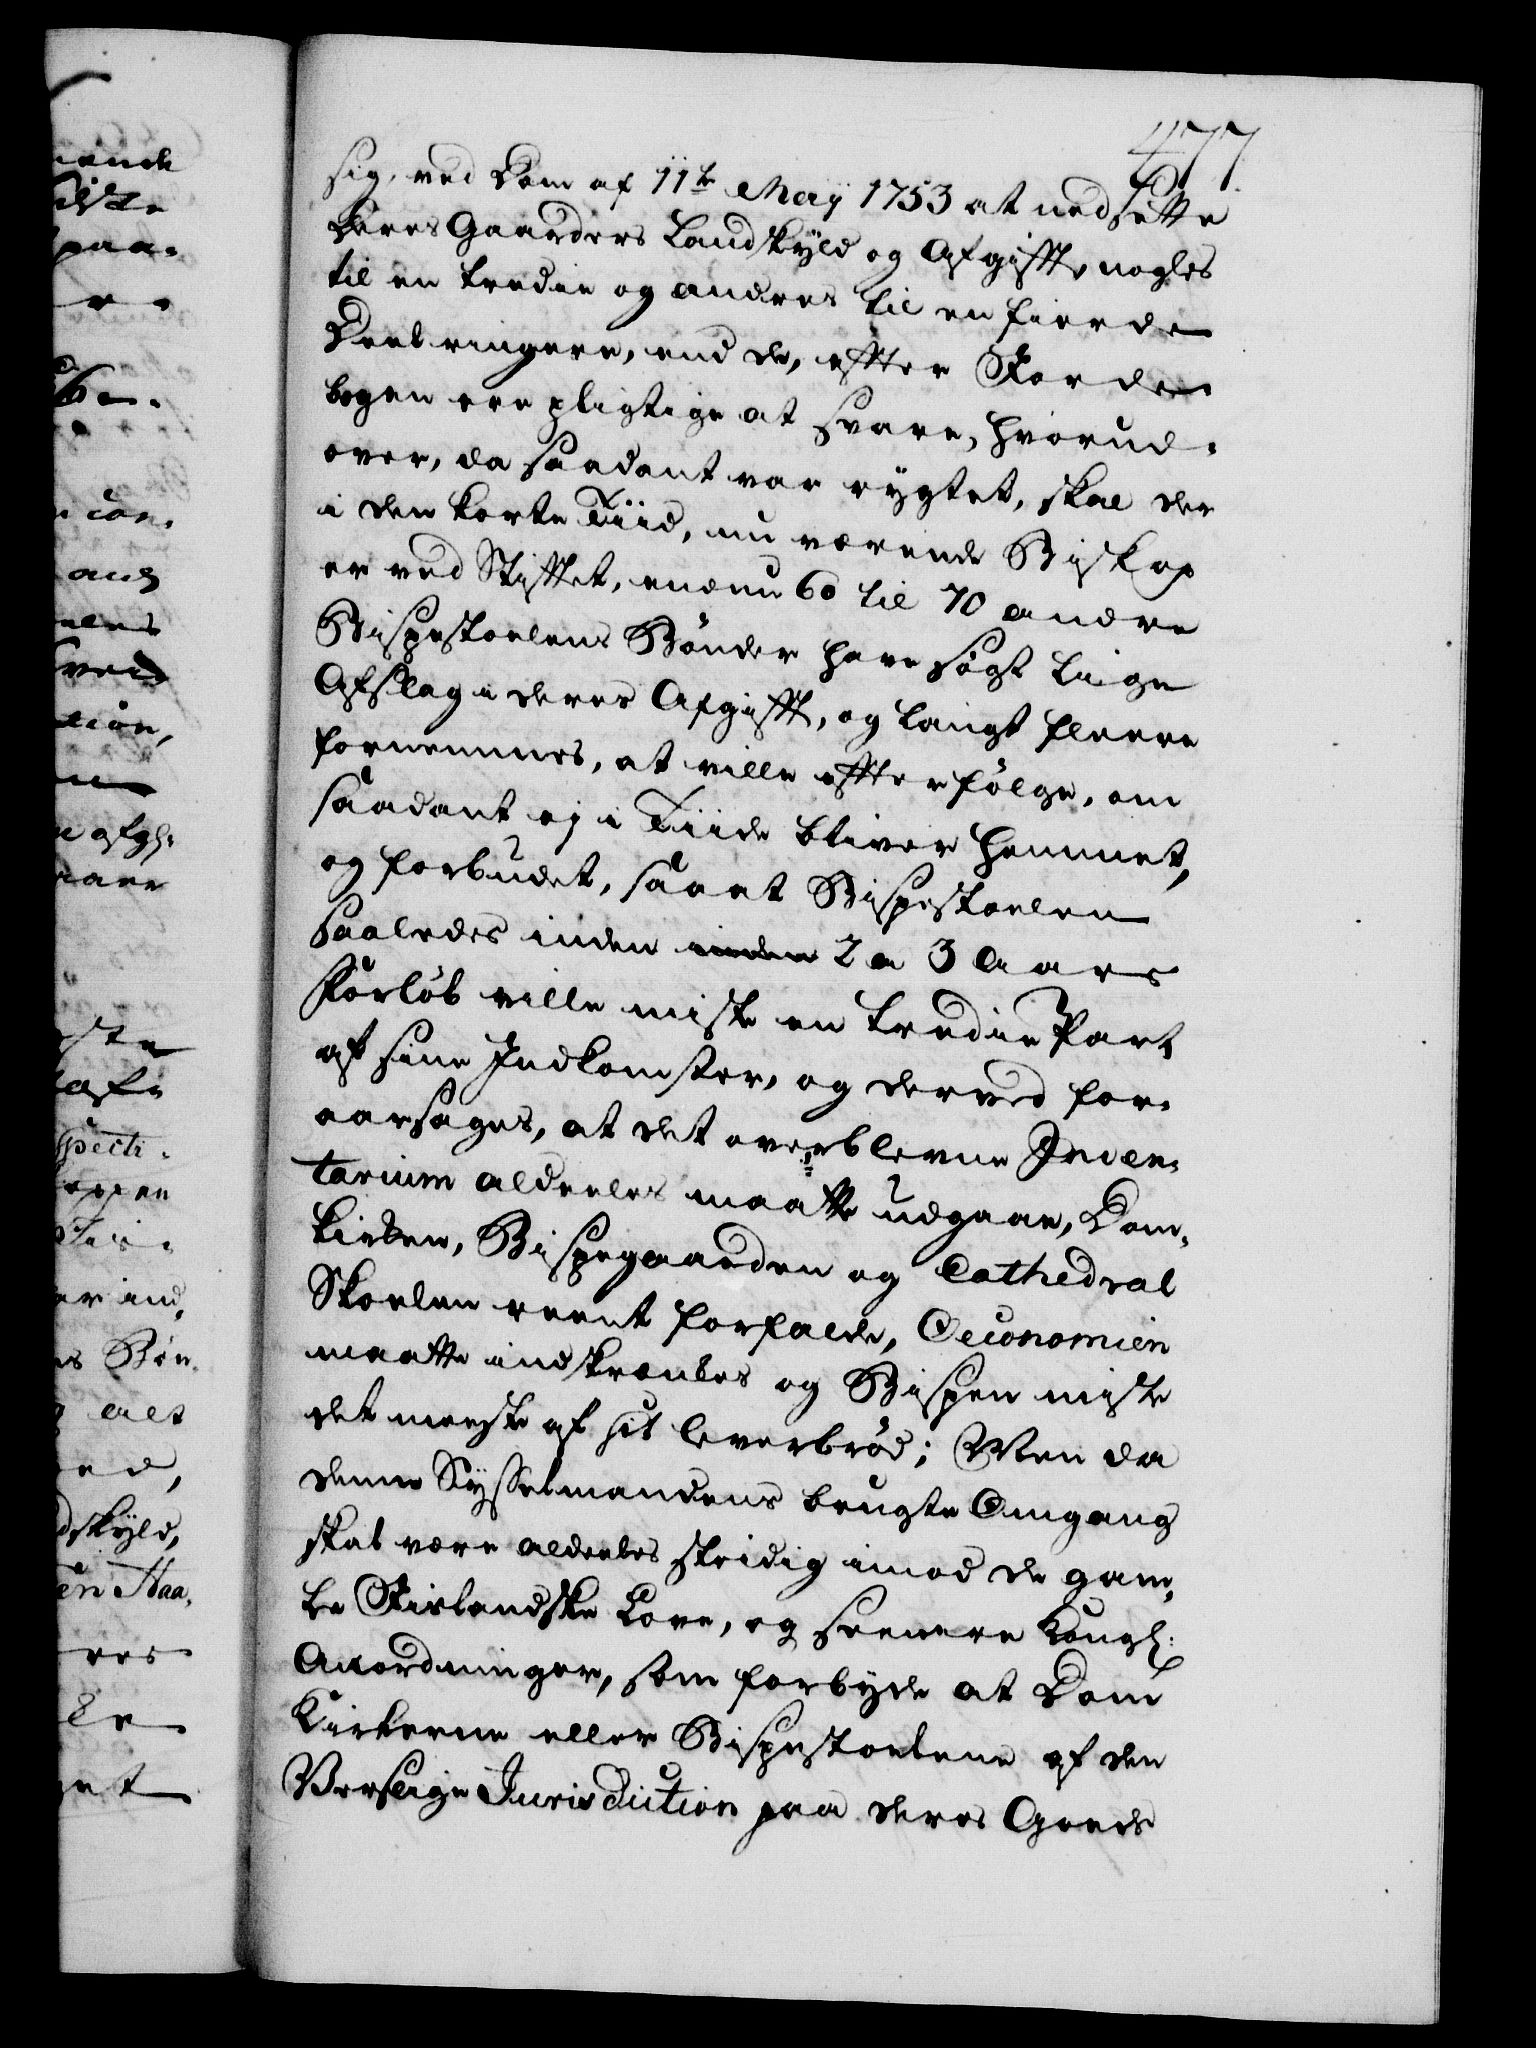 477
sig, ved Dom af 11te Maÿ 1753 at nedsætte
deres Gaarders Landskÿld og Afgifft, nogles
til en tredie og andres til en fierde
Deel ringere, end de, effter Jorde
bogen ere pligtige at svare, hvorud-
over, da saadant var rygtet, skal der
i den korte Tiid, nu værende Biskop
er ved Stifftet, endnu 60 til 70 andre
Bispestoelens Bönder have sögt liige
Afslag i deres Afgifft, og langt fleere
fornemmes, at ville effterfölge, om
saadant ej i Tiide bliver hemmet,
og forbudet, saa at Bispestoelen
saaledes inden inden 2 a 3 Aars
Forlöb ville miste en tredie Part
af sine Indkomster, og derved for-
aarsages, at det overblevne Inven-
tarium aldeeles maatte udgaae, Dom-
kirken, Bispegaarden og Cathedral
Skoelen reent forfalde, Oeconomien
maatte indskrænkes og Bispen miste
det meeste af sit levebröd; Men da
denne Sysselmandens brugte Omgang
skal være aldeeles stridig imod de gam-
le Iislandske Love, og seenere Kongl:
Anordninger, som forbyde at Dom
Kirkerne eller Bispestoelene af den
Verslige Jurisdiction paa deres Goeds
nende
paa-
con-
and
tion,
afgl:
specti-
ind-
Bön-
alt
dskÿld,
res